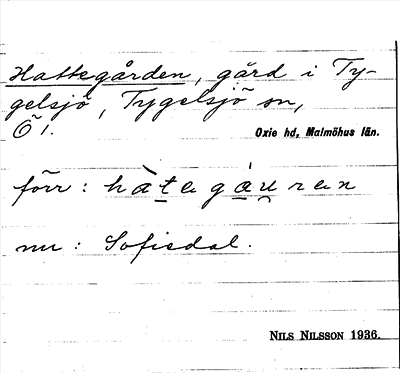 Hattegården, gård i Ty-
gelsjö, Tygelsjö sn,
Ö1.
Oxie hd, Malmöhus län.
förr: hàtegáu̯ren
nu: Sofisdal.
NILS NILSSON 1936.